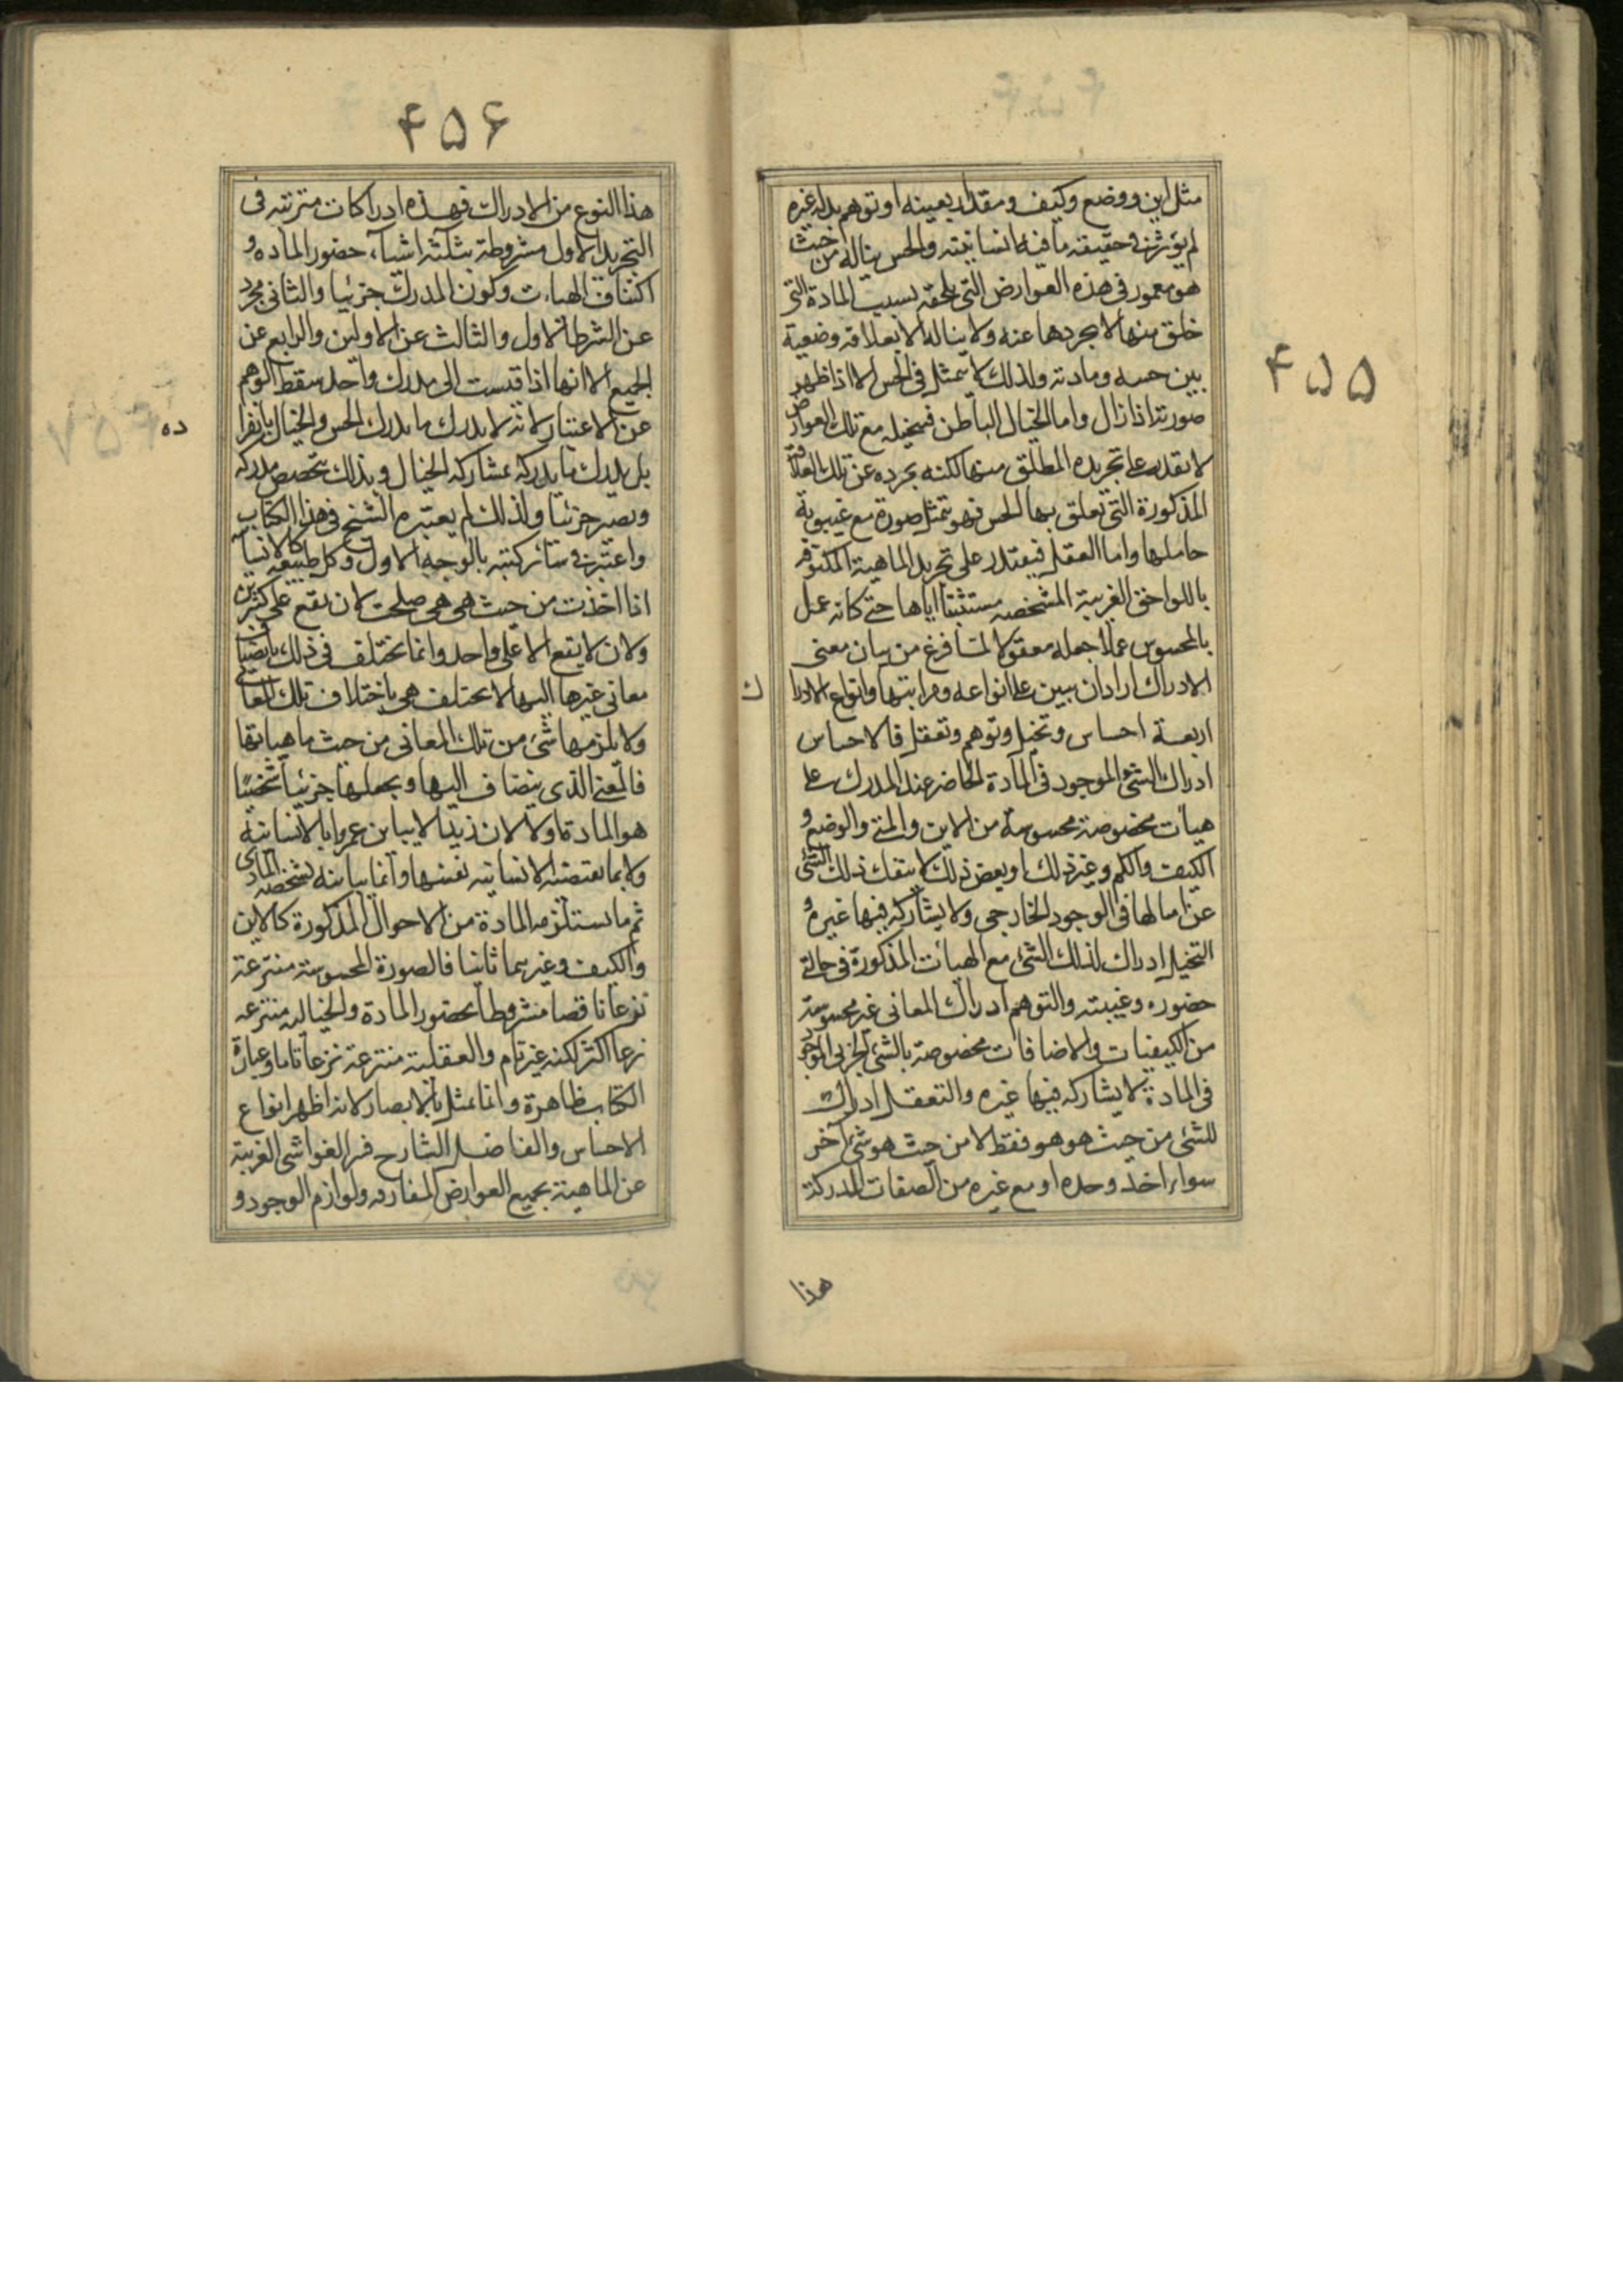 ۴۵۵
مثل این ووضع وکیف ومقدار بعینه او توهم بدله غیره
لم یؤثر فی حقیقه ماهیة انسانیته والحس یناله من حیث
هو مغمور فی هذه العوارض التی تلحقه بسبب المادة التی
خلق منها لا یجردها عنه ولا یناله الا بعلاقه وضعیة
بین حسه ومادته ولذلک لا یتمثل فی الحس الا اذا ظهر
صورته اذا زال واما الخیال الباطن فیتخیله مع تلک العوارض
لا یقدر علی تجریده المطلق منها لکنه یجرده عن تلک العلاقة
المذکورة التی تعلق بها الحس فهو یتمثل صورة مع غیبوبة
حاملها واما العقل فیقتدر علی تجرید الماهیة المکنوفه
باللواحق الغریبة المشخصه مستثبتا ایاها حتی کانه عمل
بالمحسوس عملا جعله معقولا لما فرغ من بیان معنی
الادراک اراد ان یبین علی انواعه ومراتبها وانواع الادرا
ک
اربعة احساس وتخیل وتوهم وتعقل فالاحساس
ادراک الشئ الموجود فی المادة الحاضر عند المدرک علی
هیآت مخصوصة محسوسة من الاین والمتی والوضع و
الکیف والکم وغیر ذلک وبعض ذلک لا ینفک ذلک الشئ
عن امثالها فی الوجود الخارجی ولا یشارکه فیها غیره و
التخیل ادراک لذلک الشئ مع الهیآت المذکورة فی حالتی
حضوره وغیبته والتوهم ادراک المعانی غیر محسوسة
من الکیفیات والاضافات مخصوصة بالشئ الجزئی الموجود
فی المادة لا یشارکه فیها غیره والتعقل ادراک
للشئ من حیث هو هو فقط لا من حیث هو شئ آخر
سواء اخذ وحده او مع غیره من الصفات المدرکة
هذا
۴۵۶
هذا النوع من الادراک فهذه ادراکات مترتبه فی
التجرید الاول مشروطة بثلثة اشیآء حضور الماده و
اکتناف الهیات وکون المدرک جزئیا والثانی مجرد
عن الشرط الاول والثالث عن الاولین والرابع عن
الجمیع الا انها اذا قیست الی مدرک واحد سقط الوهم
عن الاعتبار لانه لا یدرک ما یدرک الحس والخیال بانفرا
ده
بل یدرک ما یدرکه بمشارکه الخیال وبذلک یتخصص مدرکه
ویصیر جزئیا ولذلک لم یعتبره الشیخ فی هذا الکتاب
واعتبره فی سائر کتبه بالوجه الاول وکل طبیعه کالانسانیه
اذا اخذت من حیث هی هی صلحت لان یقع علی کثیرین
ولان لا یقع الا علی واحد وانما یختلف فی ذلک بانضیاف
معانی غیرها الیها لا یختلف هی باختلاف تلک المعانی
ولا یلزمها شئ من تلک المعانی من حیث ماهیاتها
فالمعنی الذی ینضاف الیها ویجعلها جزئیا شخصیًا
هو المادة اولا لان زیدا لا یباین عمروا بالانسانیة
ولا بما یقتضیه الانسانیه نفسها وانما یباینه لشخصه المادی
ثم ما یستلزمه المادة من الاحوال المذکورة کالاین
والکیف وغیرهما ثانیا فالصورة المحسوسة منتزعة
نزعا ناقصا مشروطا بحضور المادة والخیالیه منتزعه
نزعا اکثر لکنه غیر تام والعقلیة منتزعة نزعا تاما وعبارة
الکتاب ظاهرة وانما مثل بالابصار لانه اظهر انواع
الاحساس والفاضل الشارح فسر الغواشی الغریبة
عن الماهیة بجمیع العوارض المفارقه ولوازم الوجود و